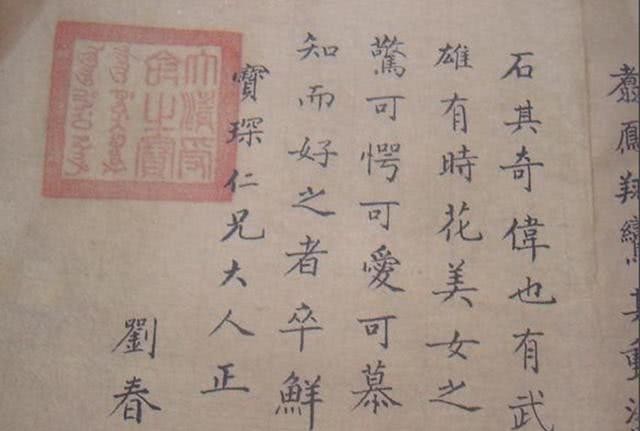 鳳翔鸞其
石其奇偉也有武
雄有時花美女之
驚可愕可愛可慕
知而好之者卒鮮
寶琛仁兄大人正
劉春
大清受
命之寶